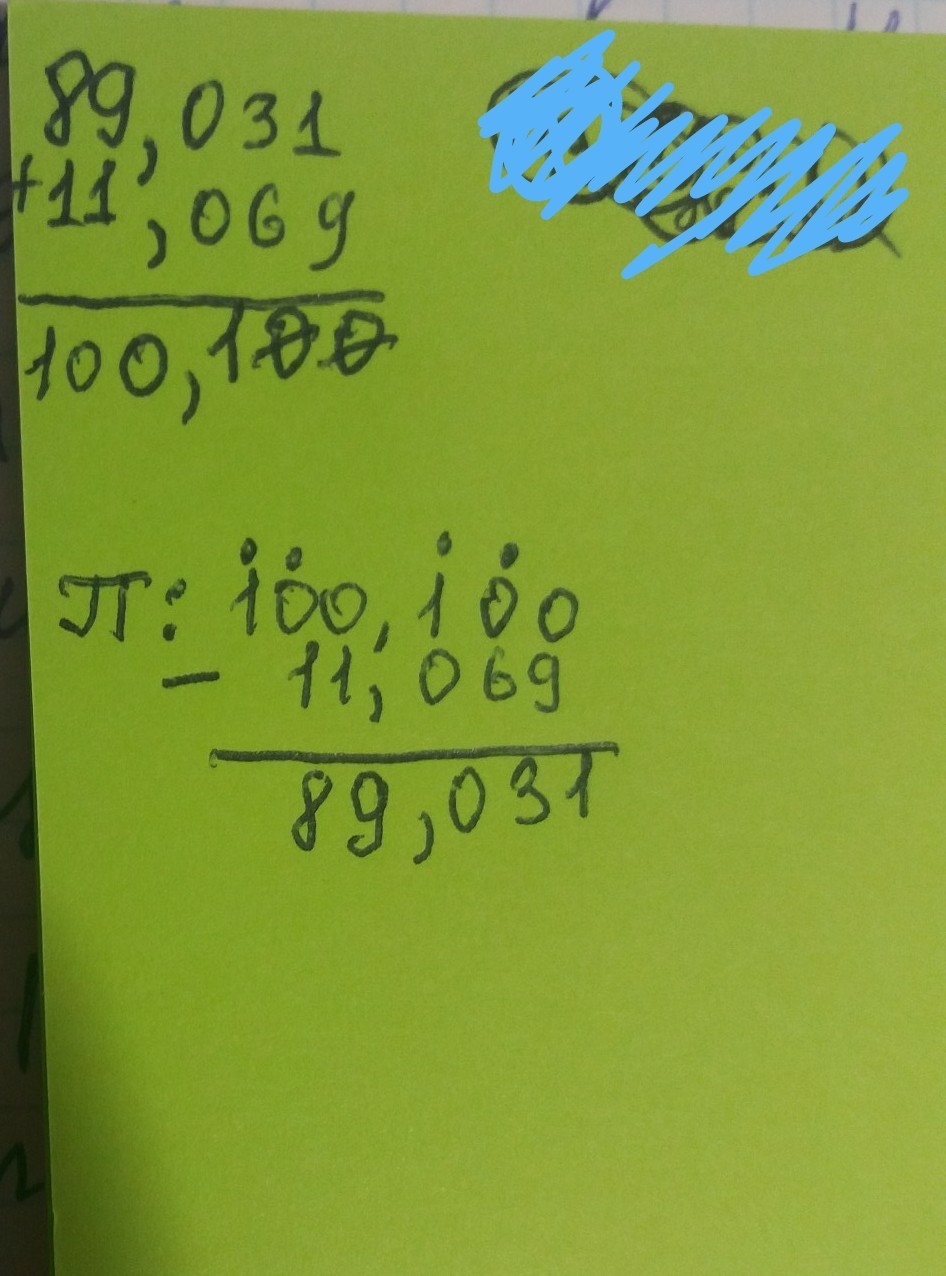 89,031
+11,069
100,100
П: 100,100
- 11,069
89,031